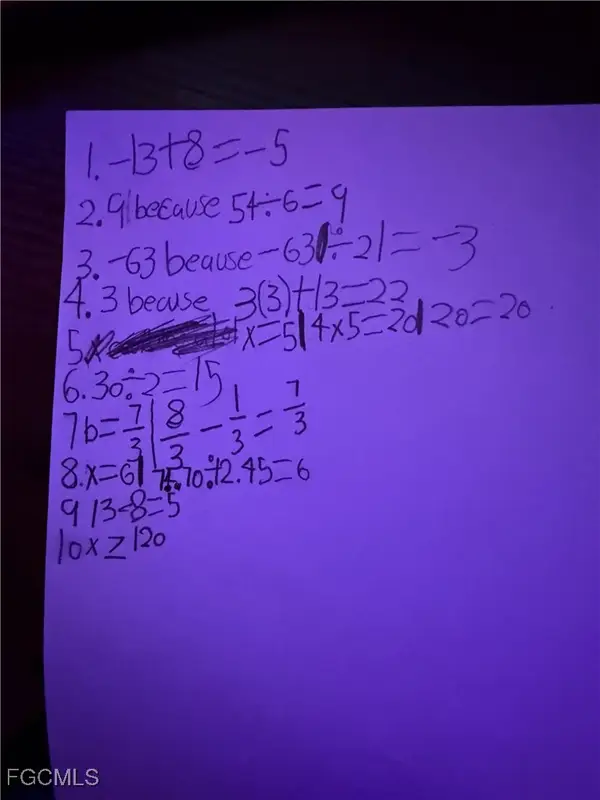 1. -13+8=-5
2. 9|because 54÷6=9
3. -63 beause -63|÷21=-3
4. 3 becuse 3(3)+13=22
5 x=5|4x5=20|20=20
6. 30÷2=15
7 b=7/3|8/3-1/3=7/3
8. x=6| 74.70÷12.45=6
9 13-8=5
10 x≥120
FGCMLS